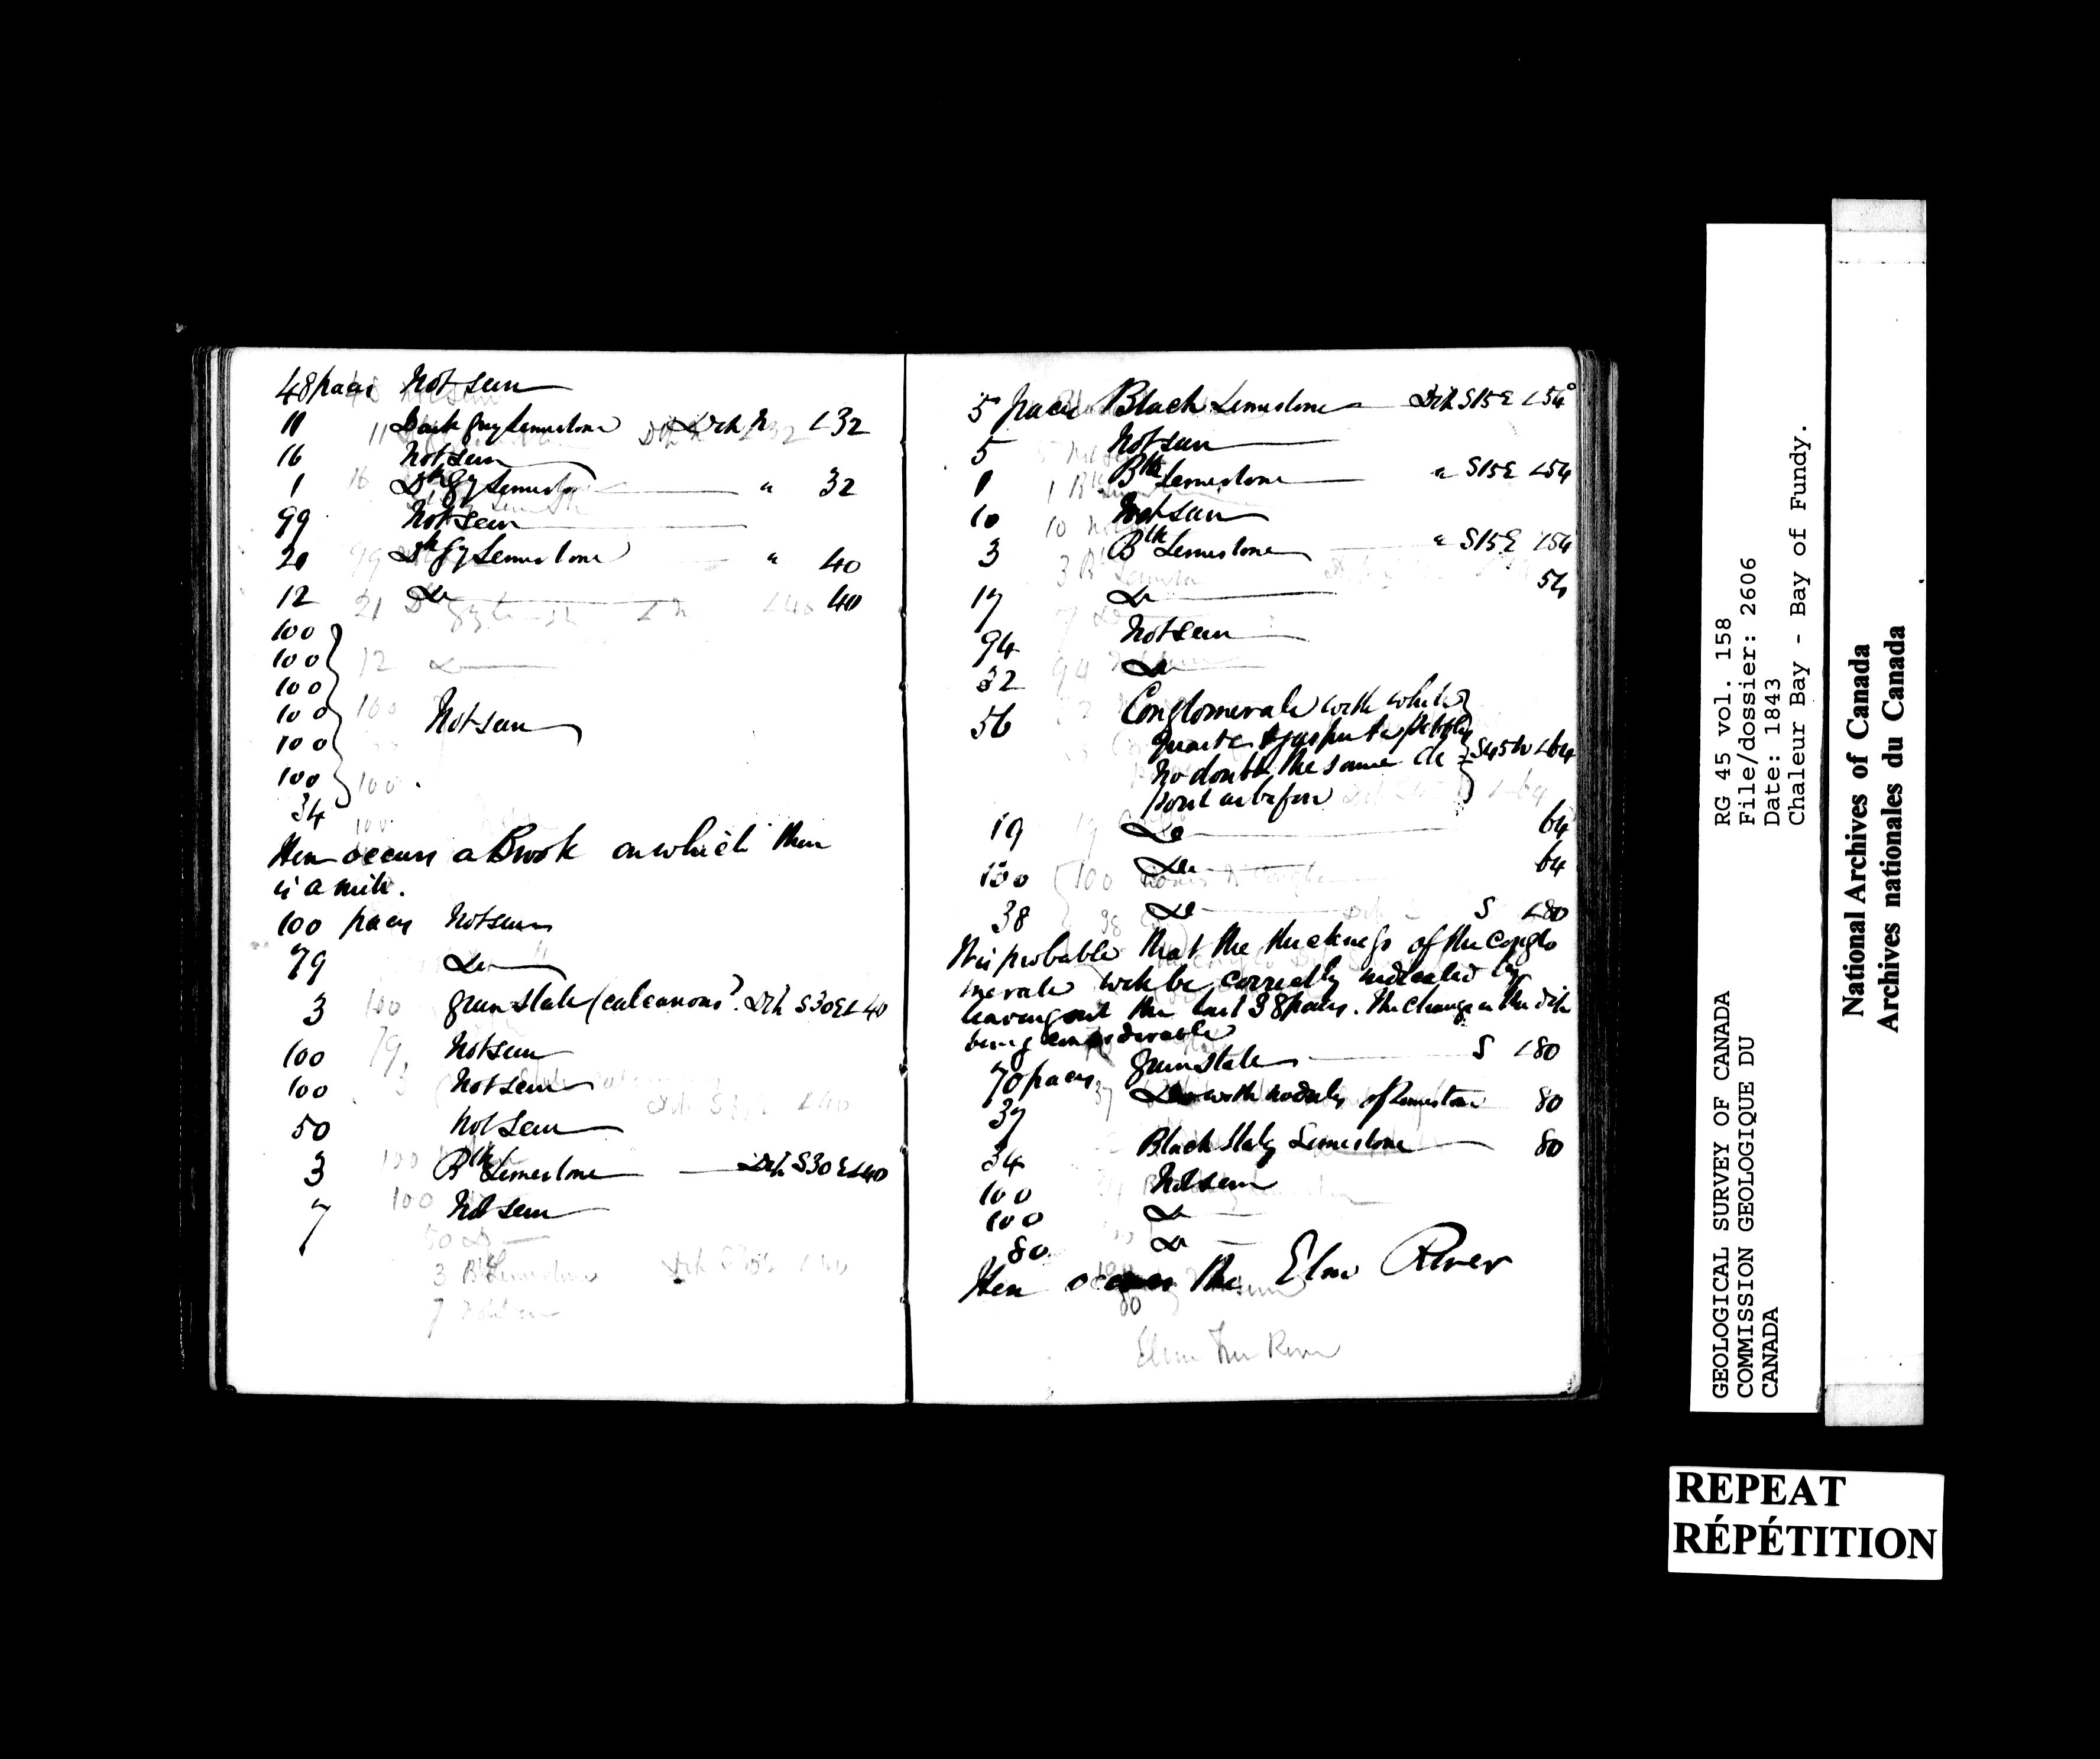 48 paces Not seen
11 Dark grey limestone Dip N ∠32
16 Not seen
1 Dk gy limestone " 32
99 Not seen
20 Dk gy limestone " 40
12 Do 40
100
100
100
100 Not seen
100
100
34
Here occurs a Brook on which there
is a mill.
100 paces Not seen
79 Do
3 green slate (calcareous? Dip S30E ∠40
100 Not seen
100 Not seen
50 Not seen
3 Blk limestone Dip S30E ∠40
7 Not seen
5 paces Black Limestone Dip S15E ∠54°
5 Not seen
1 Blk limestone " S15E ∠54
10 Not seen
3 Blk limestone " S15E ∠54
17 Do 54
94 Not seen
32 Do
56 Conglomerate with white
quartz & jasper pebbles
No doubt the same de S45W ∠64
posit as before
19 Do 64
100 Do 64
38 Do S ∠80
It is probable that the thickness of the conglo
merate will be correctly indicated by
leaving out the last 38 paces. The change in the dip
being considerable
70 paces green slate S ∠80
37 Do with nodules of limestone 80
34 Black slaty Limestone 80
100 Not seen
100 Do
80 Do
Here occurs the Elm River
Elm Tree River
GEOLOGICAL SURVEY OF CANADA
COMMISSION GEOLOGIQUE DU
CANADA
RG 45 vol. 158
File/dossier: 2606
Date: 1843
Chaleur Bay - Bay of Fundy.
National Archives of Canada
Archives nationales du Canada
REPEAT
RÉPÉTITION